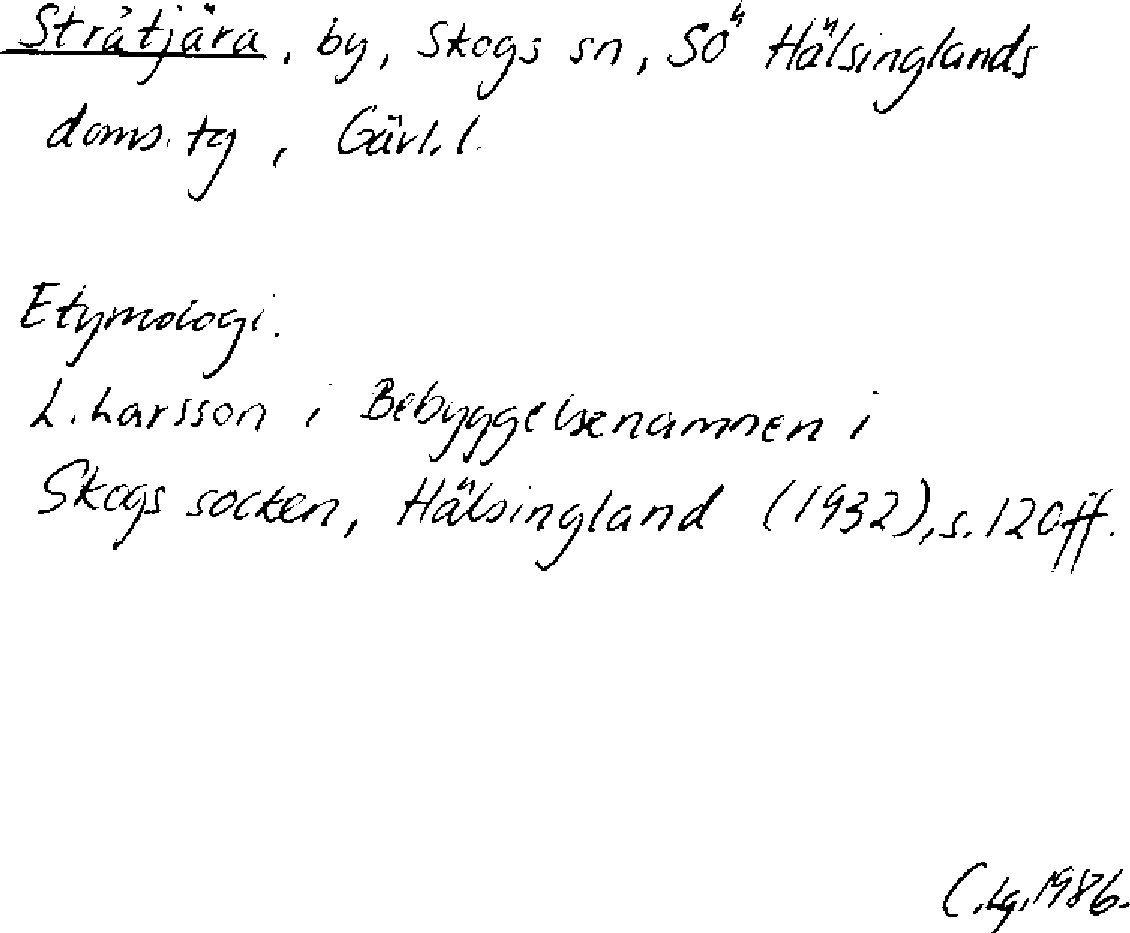 Stråtjära, by, Skogs sn, SÖ Hälsinglands
doms.tg, Gävl.l.
Etymologi.
L. Larsson i Bebyggelsenamnen i
Skogs socken, Hälsingland (1932), s. 120ff.
C.Lg.1986.